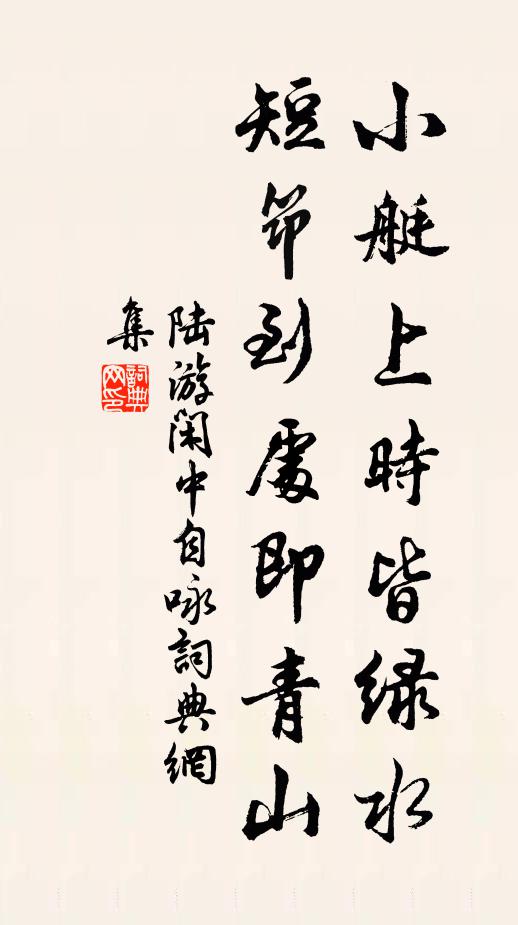 小艇上時皆緑水
短筇到處即青山
陆游闲中自咏詞典網
集
詞典
网印